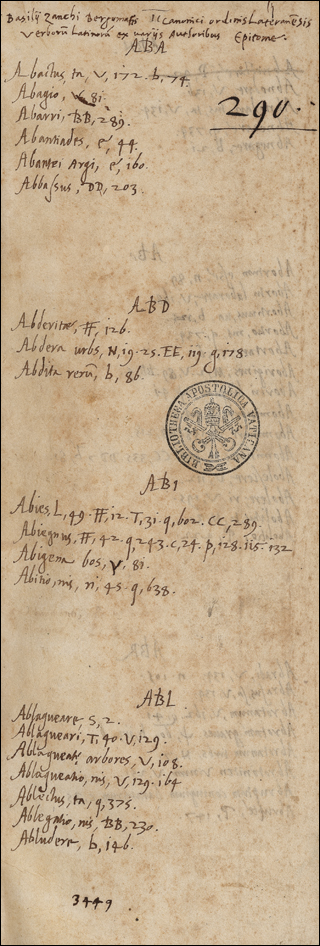 Basilij Zanchi Bergomatis Canonici ordinis Lateranẽsis
Verborũ Latinorũ ex varijs Auctoribus Epitome.
ABA
290.
Abactus, ta, V, 172. b, 74.
Abagio, 81.
Abarri, BB, 289.
Abantiades, é, 44.
Abantei Argi, é, 160.
Abbassus, DD, 203.
ABD
Abderitæ, FF, 126.
Abdera urbs, N, 19. 25. EE, 119. g, 178
Abdita rerũ, b, 86.
BIBLIOTHECA APOSTOLICA VATICANA
ABI
Abies L, 49. FF, 12. T, 31. q, 602. CC, 289.
Abiegnus, FF, 42. q, 243. c, 24. p, 128. 115. 132
Abigena bos, V. 81.
Abitio, nis, n, 45. q, 638.
ABL
Ablaqueare, S, 2.
Ablaqueari, T, 40. V, 129.
Ablaqueatę arbores, V, 108.
Ablaqueatio, nis, V, 129. 164
Ablectus, ta, q, 375.
Ablegatio, nis, BB, 230.
Abludere, b, 146.
3449